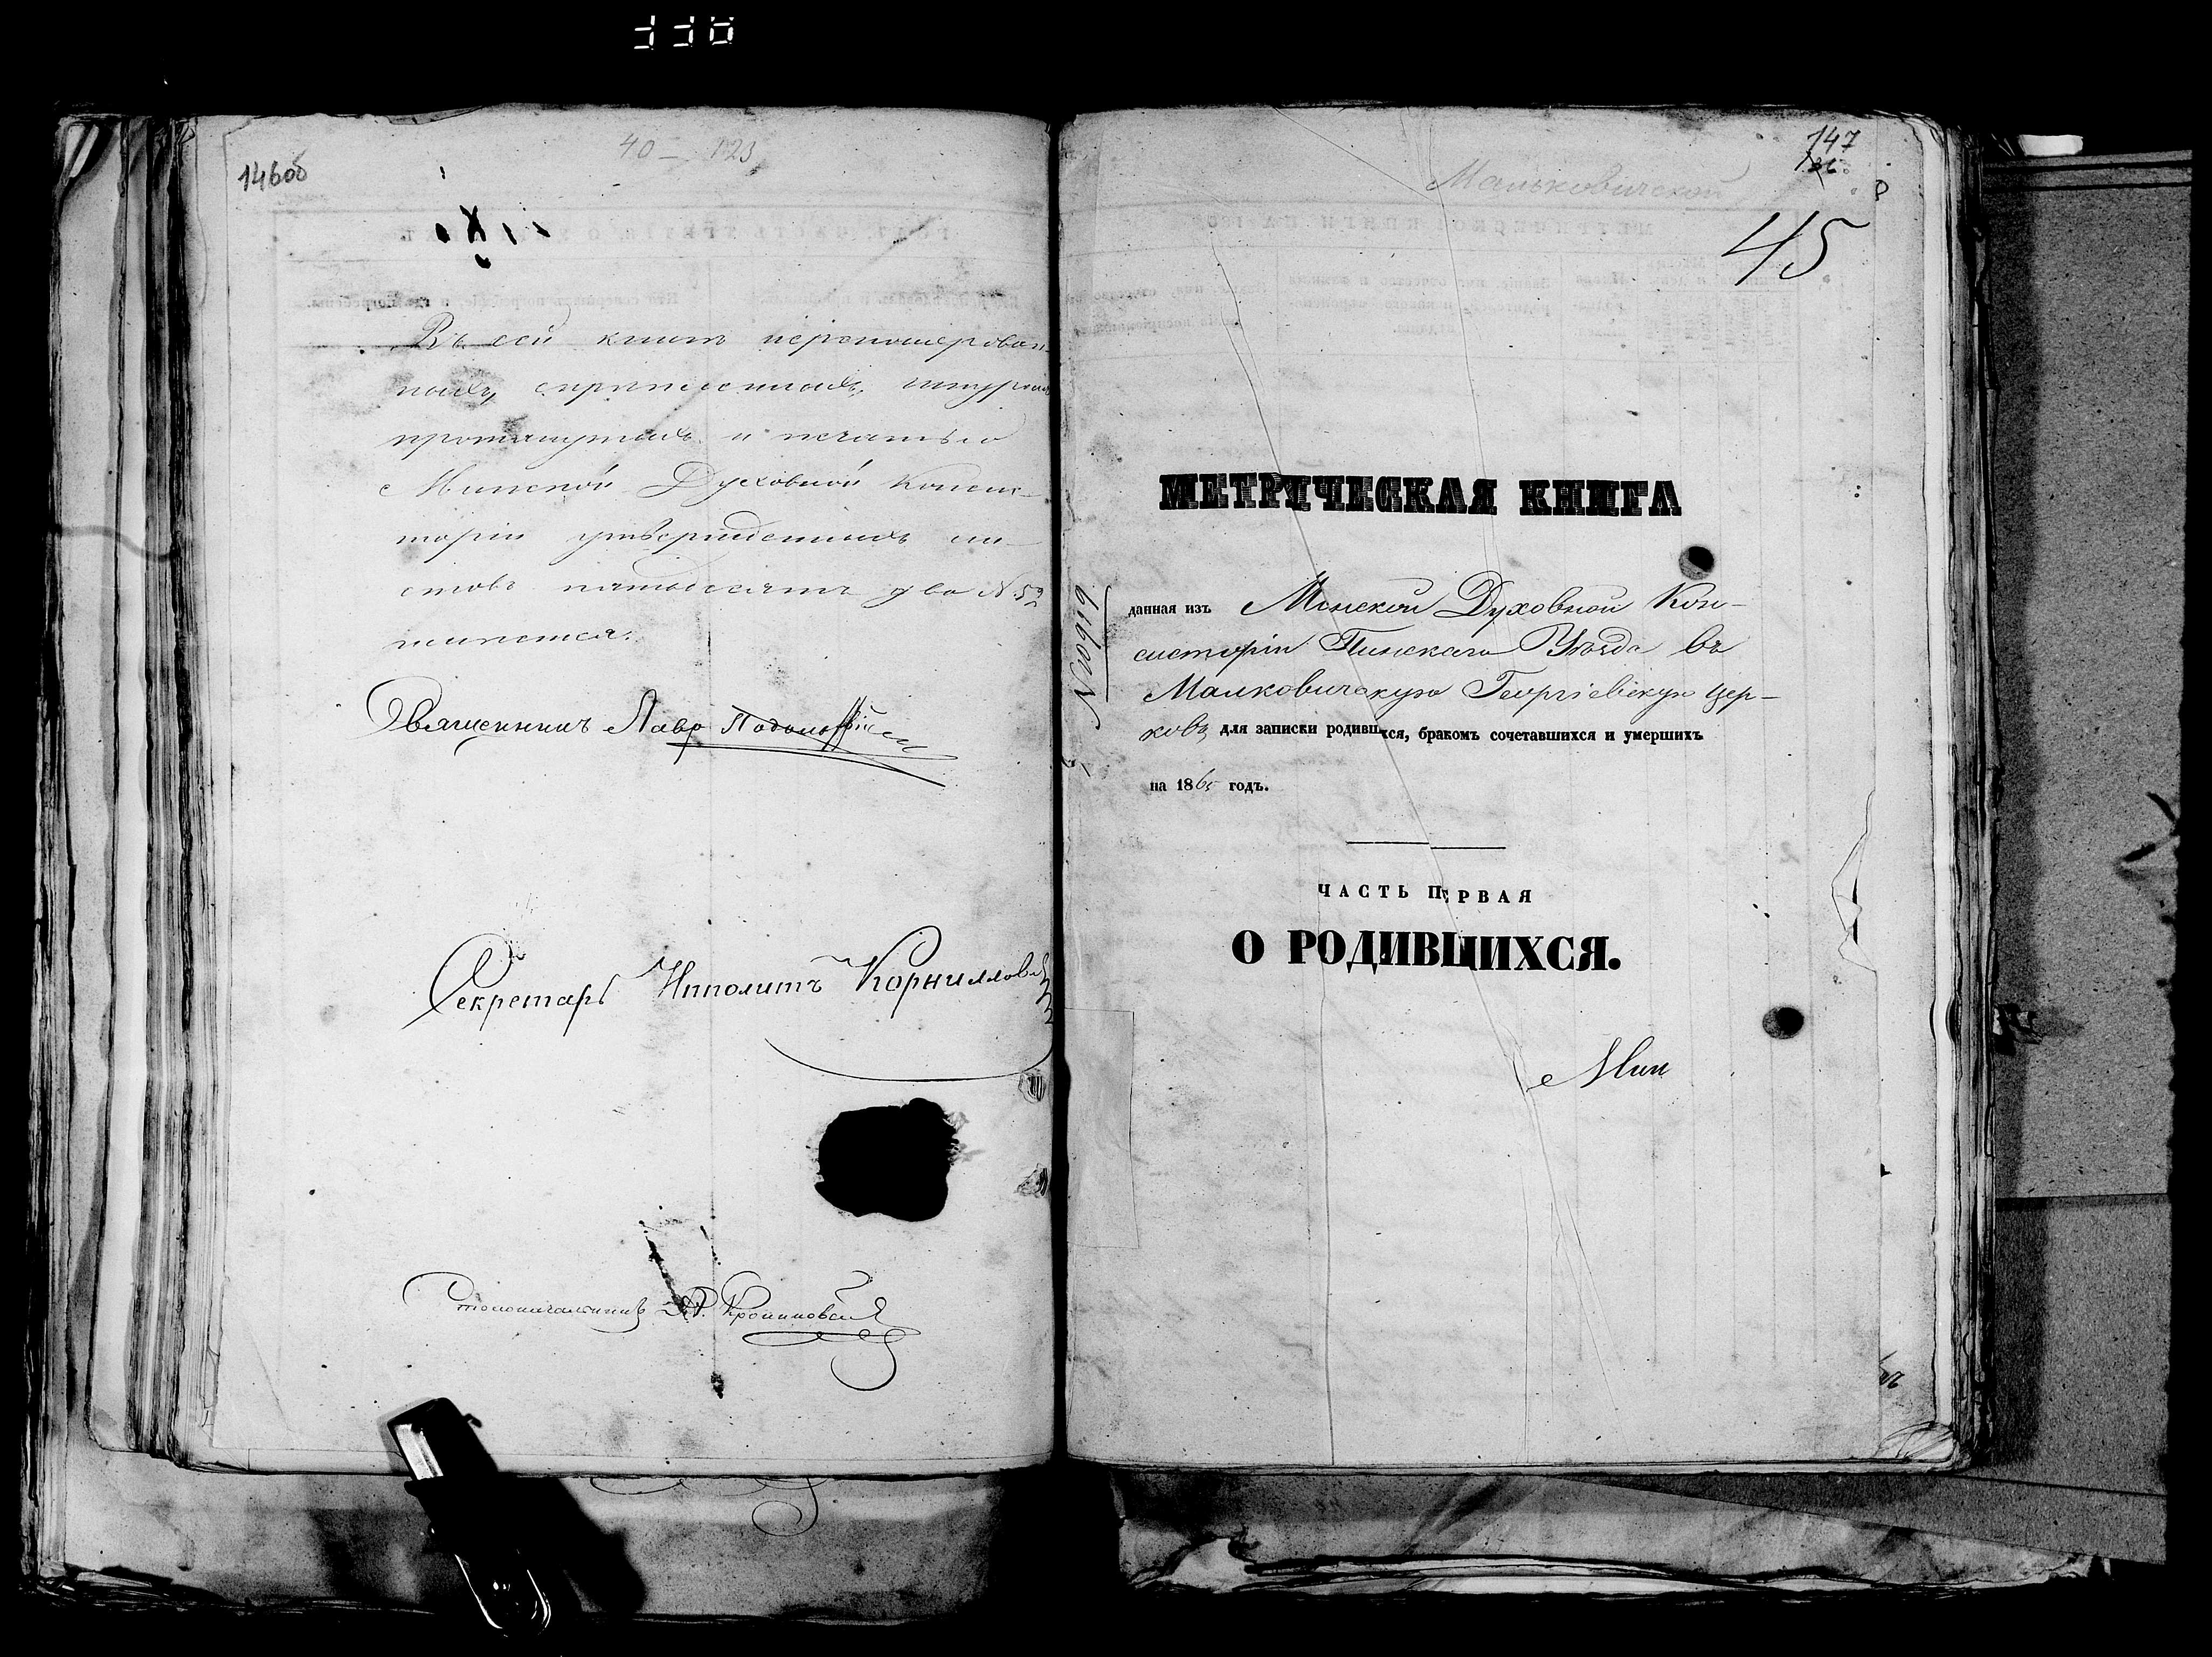 40 – 123
146об
Въ сей книгѣ перенумерован-
ныхъ, скрѣпленныхъ, шнуромъ
протянутыхъ и печатью
Минской Духовной Консис-
торіи утвержденныхъ ли-
стовъ пятьдесятъ два N. 52
числится.
Священникъ Лавр
Секретарь Ипполитъ Корнилович
Столоначальникъ
147
Мальковичской
45
МЕТРИЧЕСКАЯ КНИГА
данная изъ Минской Духовной Кон-
систоріи Пинскаго Уѣзда въ
Малковичскую Георгіевскую цер-
ковь для записки родившихся, бракомъ сочетавшихся и умершихъ
на 1865 годъ.
ЧАСТЬ ПЕРВАЯ
О РОДИВШИХСЯ.
Мин